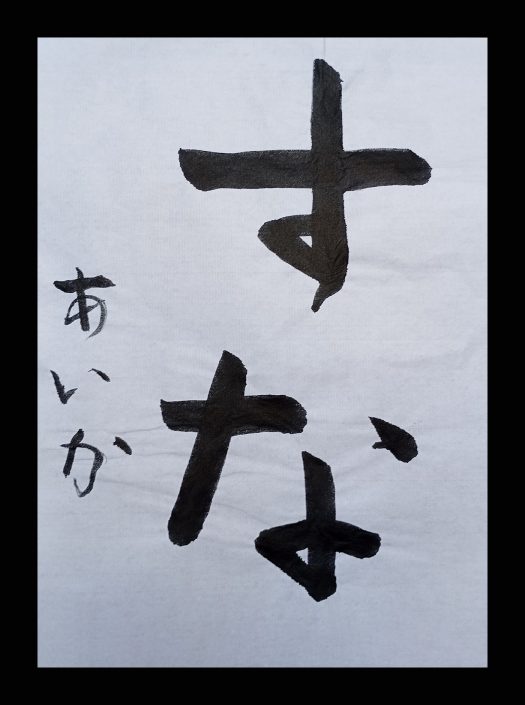 すな
あいか